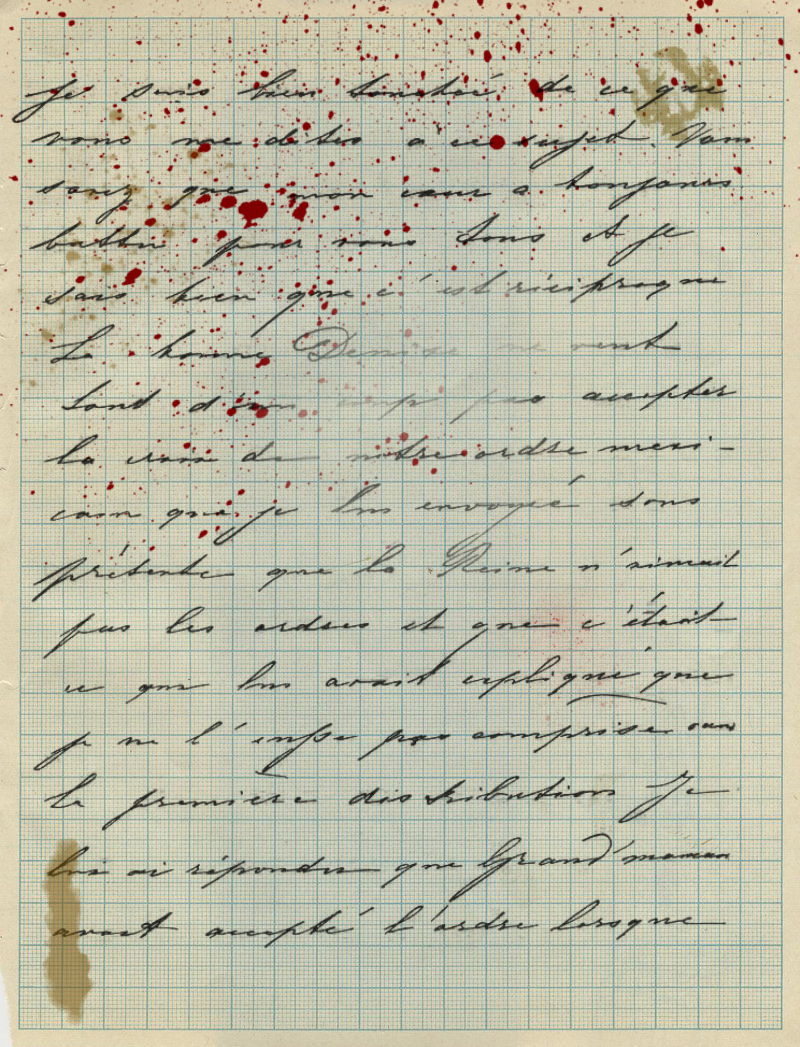 Je suis bien touchée de ce que
vous me dites à ce sujet. Vous
savez que mon cœur a toujours
battu pour vous tous et je
sais bien que c'est réciproque
La bonne Denise ne veut
tout d'un coup pas accepter
la croix de notre ordre mexi-
cain que je lui envoyé sous
prétexte que la Reine n'aimait
pas les ordres et que c'était
ce qui lui avait expliqué que
je ne l'eusse pas comprise dans
la première distribution Je
lui ai répondu que Grand'maman
avait accepté l'ordre lorsque